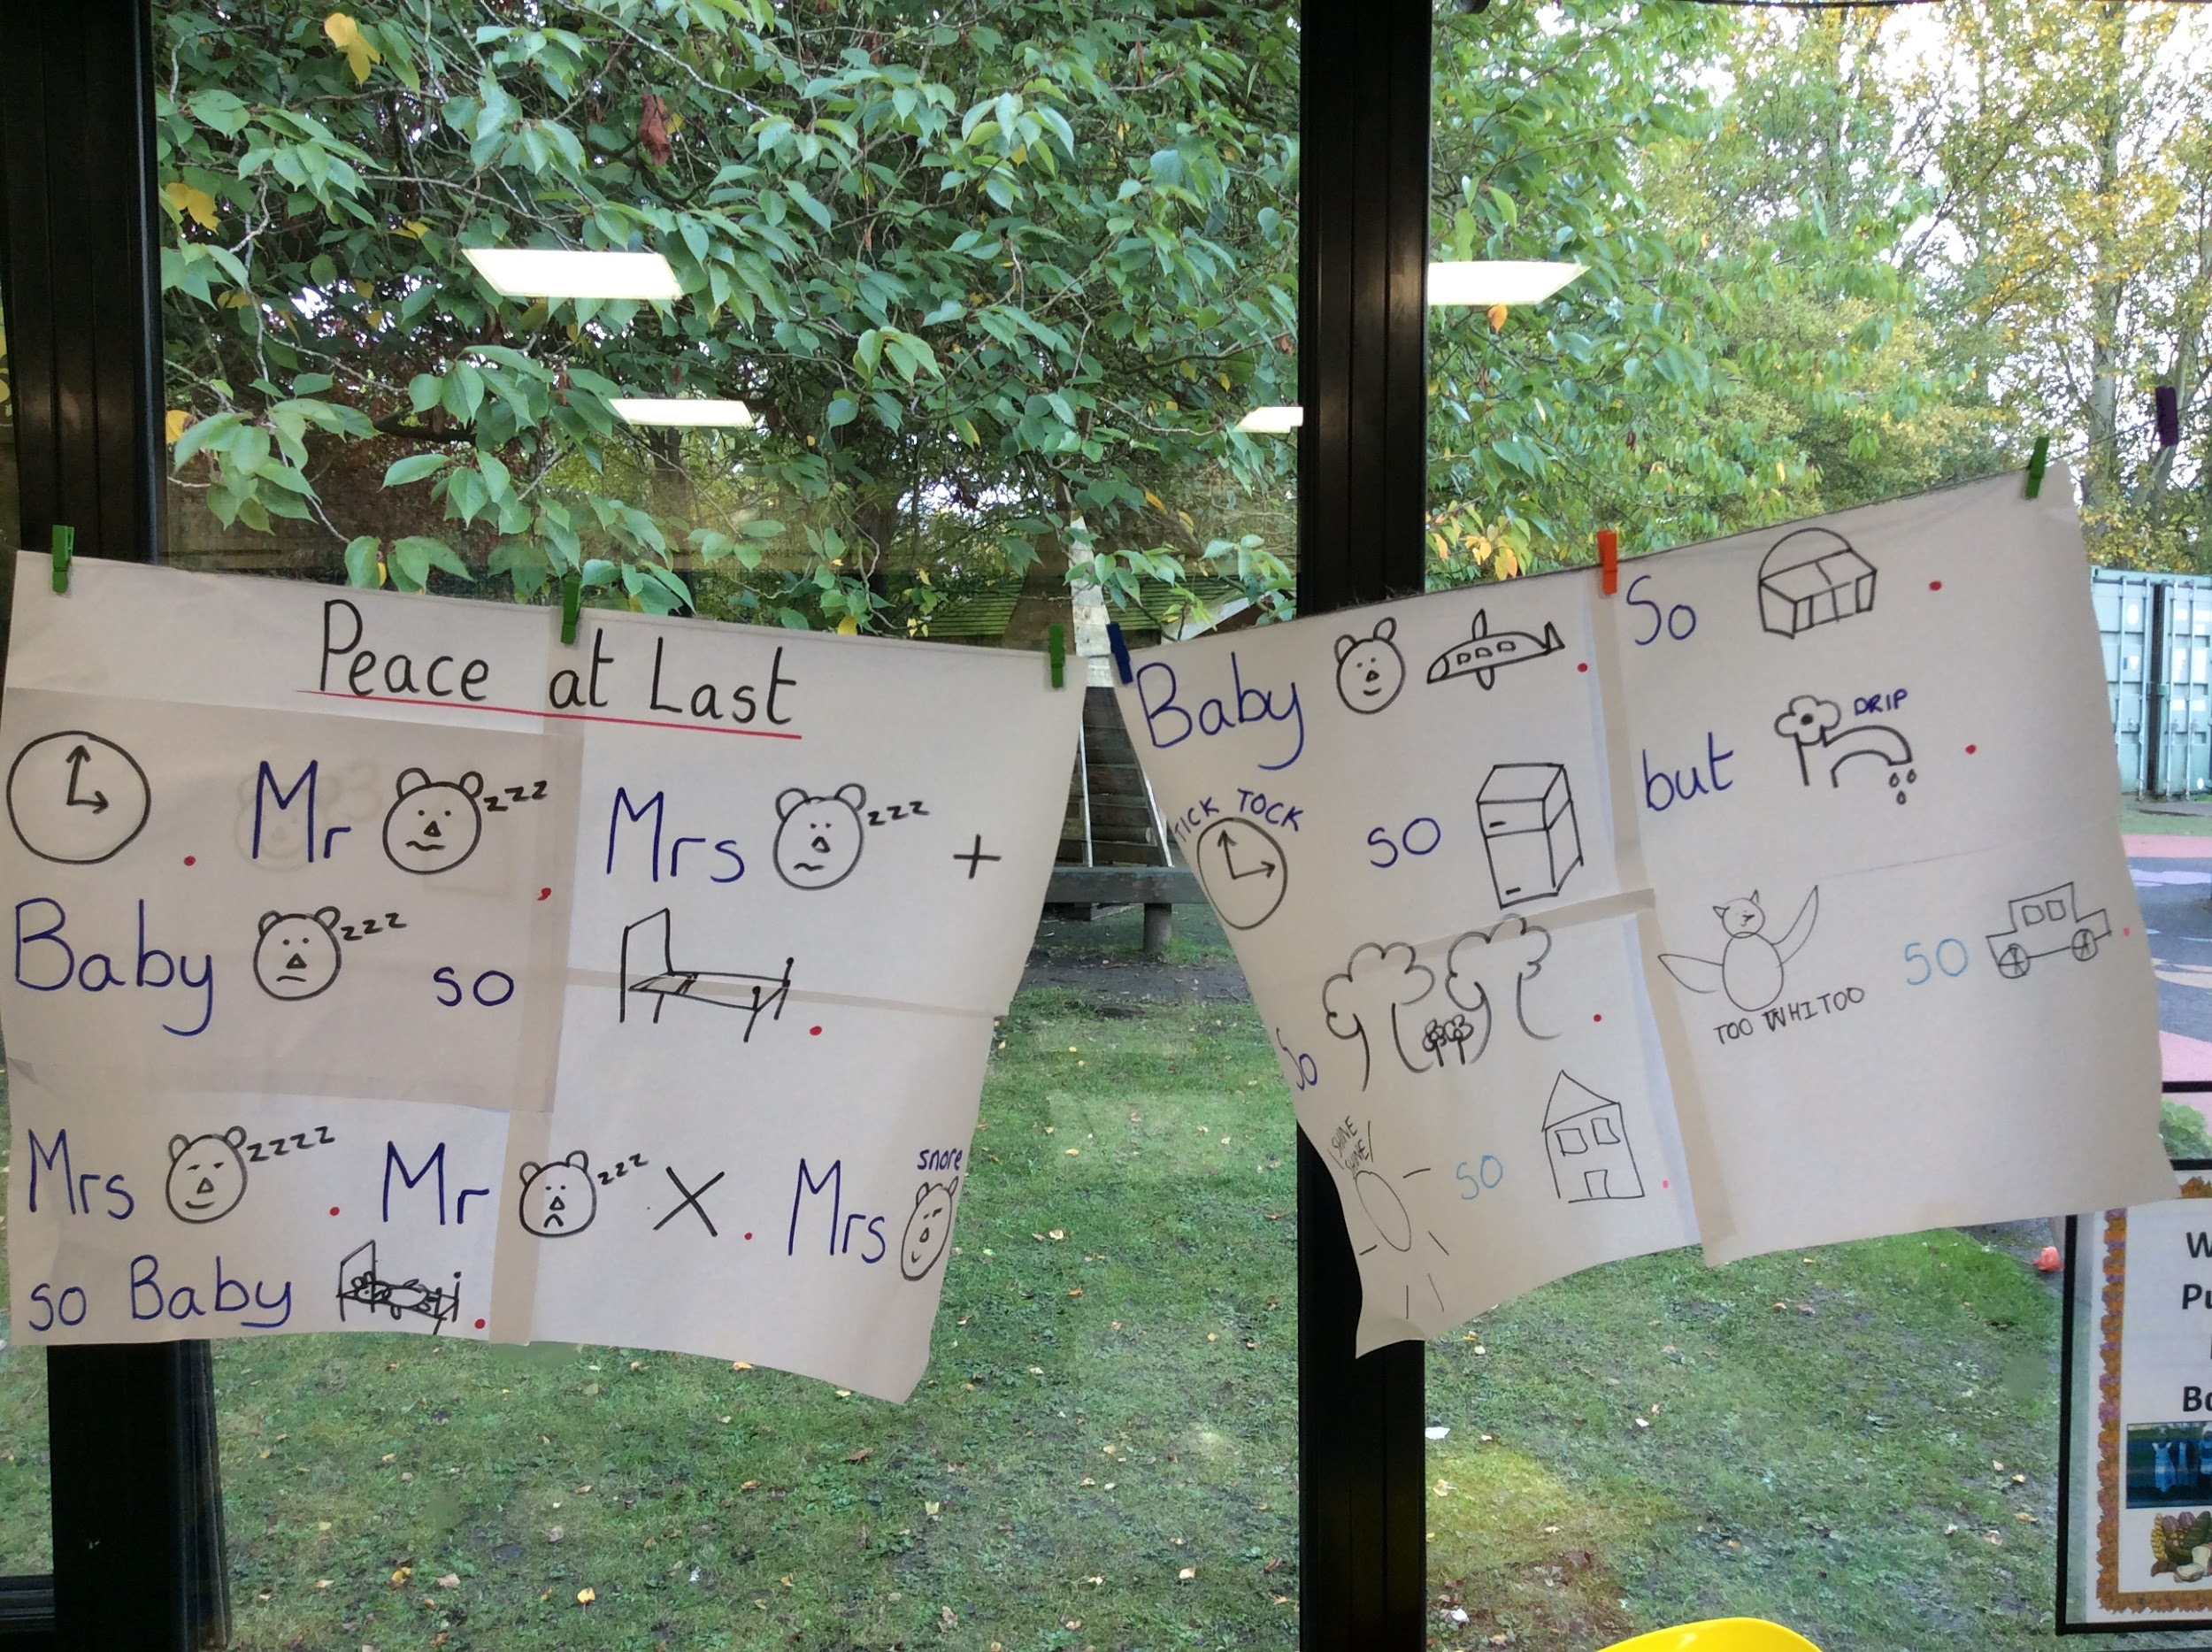 Peace at Last
. Mr zzz, Mrs zzz +
Baby zzz so .
Mrs zzzz . Mr zzz X . Mrs snore
so Baby .
Baby . So .
TICK TOCK so but DRIP .
So . TOO WHITOO so .
SHINE SHINE! so .
W
Pu
Bo